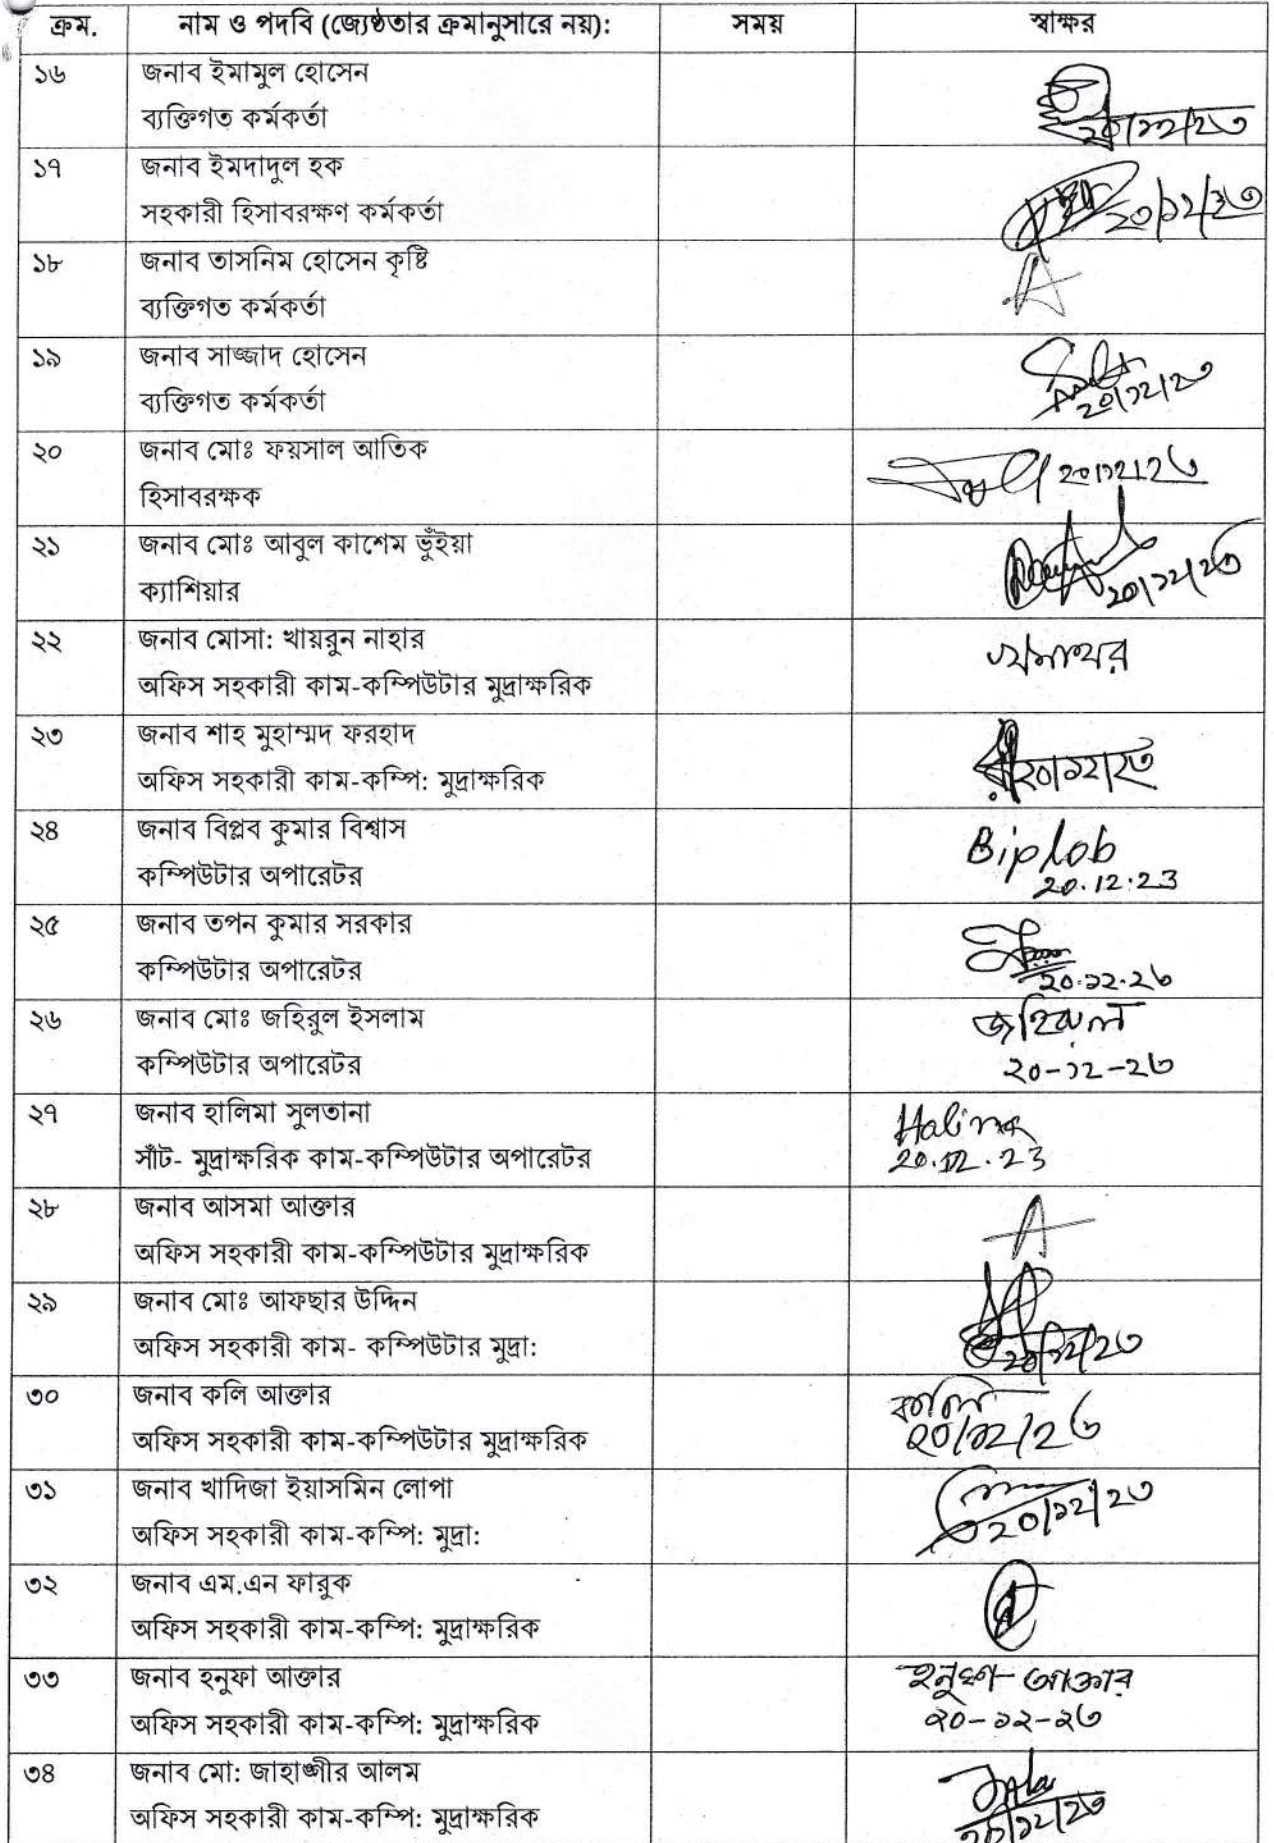 ক্রম. নাম ও পদবি (জ্যেষ্ঠতার ক্রমানুসারে নয়): সময় স্বাক্ষর
১৬ জনাব ইমামুল হোসেন
ব্যক্তিগত কর্মকর্তা ২০/১২/২৩
১৭ জনাব ইমদাদুল হক
সহকারী হিসাবরক্ষণ কর্মকর্তা
১৮ জনাব তাসনিম হোসেন কৃষ্টি
ব্যক্তিগত কর্মকর্তা
১৯ জনাব সাজ্জাদ হোসেন
ব্যক্তিগত কর্মকর্তা ২০/১২/২৩
২০ জনাব মোঃ ফয়সাল আতিক
হিসাবরক্ষক ২০/১২/২৩
২১ জনাব মোঃ আবুল কাশেম ভুঁইয়া
ক্যাশিয়ার ২০/১২/২৩
২২ জনাব মোসা: খায়রুন নাহার
অফিস সহকারী কাম-কম্পিউটার মুদ্রাক্ষরিক
২৩ জনাব শাহ মুহাম্মদ ফরহাদ
অফিস সহকারী কাম-কম্পি: মুদ্রাক্ষরিক ২০/১২/২৩
২৪ জনাব বিপ্লব কুমার বিশ্বাস Biplob
কম্পিউটার অপারেটর 20.12.23
২৫ জনাব তপন কুমার সরকার
কম্পিউটার অপারেটর ২০.১২.২৩
২৬ জনাব মোঃ জহিরুল ইসলাম জহিরুল
কম্পিউটার অপারেটর ২০-১২-২৩
২৭ জনাব হালিমা সুলতানা Halima
সাঁট- মুদ্রাক্ষরিক কাম-কম্পিউটার অপারেটর 20.12.23
২৮ জনাব আসমা আক্তার
অফিস সহকারী কাম-কম্পিউটার মুদ্রাক্ষরিক
২৯ জনাব মোঃ আফছার উদ্দিন
অফিস সহকারী কাম- কম্পিউটার মুদ্রা: ২০/১২/২৩
৩০ জনাব কলি আক্তার কলি
অফিস সহকারী কাম-কম্পিউটার মুদ্রাক্ষরিক ২০/১২/২৩
৩১ জনাব খাদিজা ইয়াসমিন লোপা
অফিস সহকারী কাম-কম্পি: মুদ্রা: ২০/১২/২৩
৩২ জনাব এম.এন ফারুক
অফিস সহকারী কাম-কম্পি: মুদ্রাক্ষরিক
৩৩ জনাব হনুফা আক্তার হনুফা আক্তার
অফিস সহকারী কাম-কম্পি: মুদ্রাক্ষরিক ২০-১২-২৩
৩৪ জনাব মো: জাহাঙ্গীর আলম
অফিস সহকারী কাম-কম্পি: মুদ্রাক্ষরিক ২০/১২/২৩